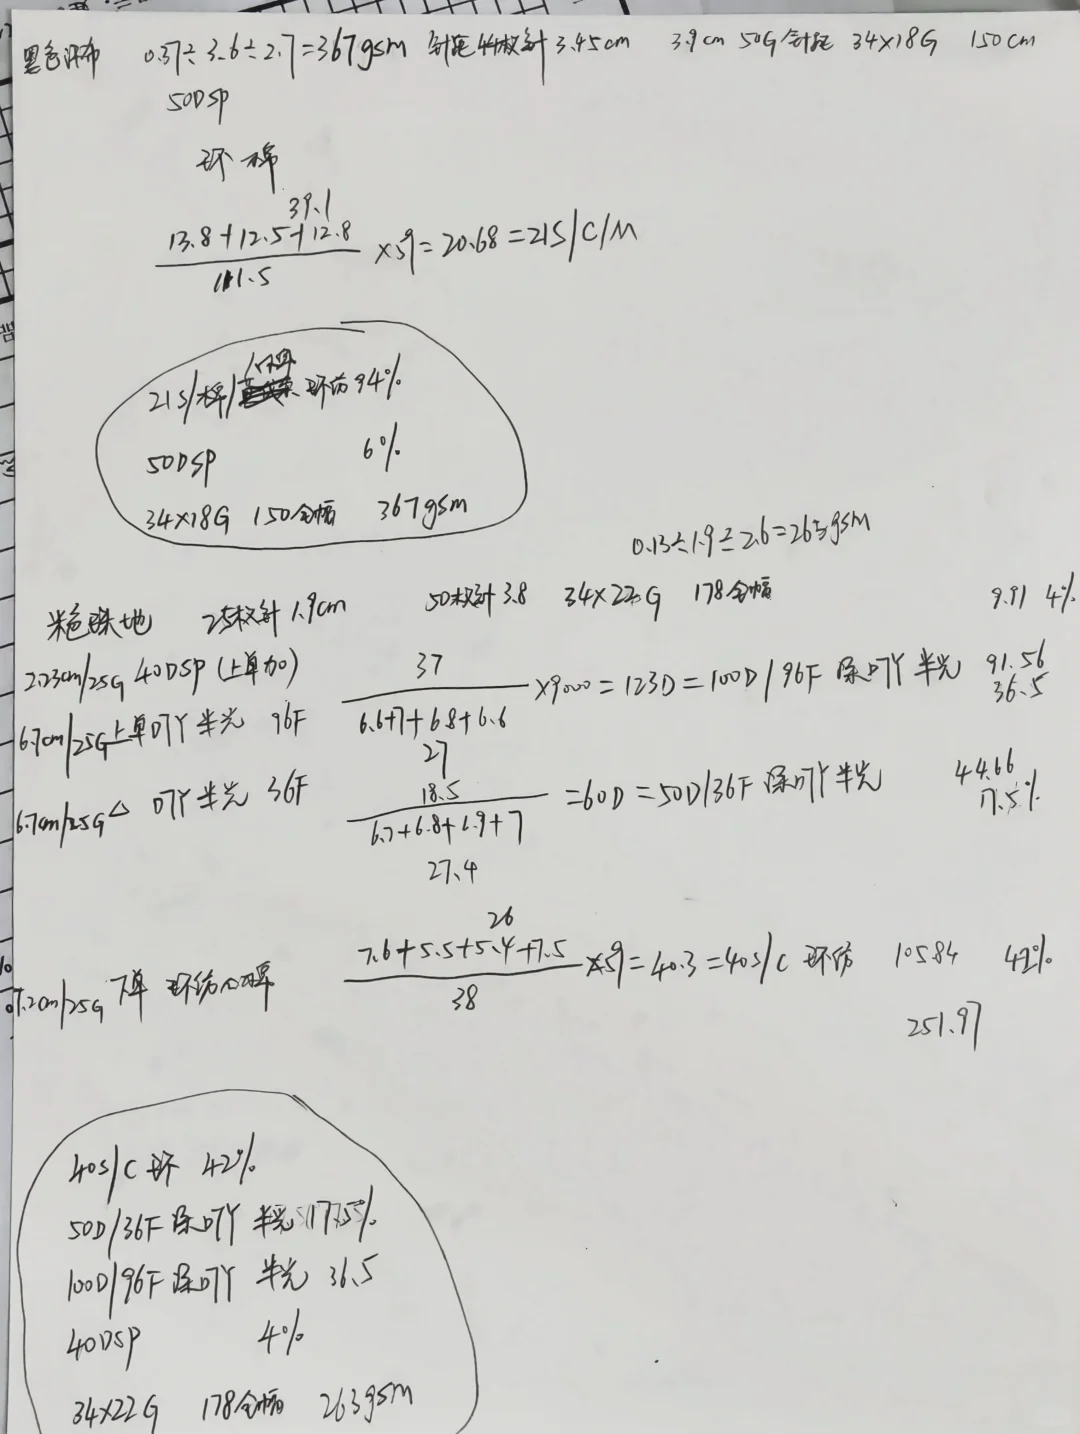 黑色汗布 0.37÷3.6÷2.7=367gsm 针距44枚针 3.45cm 3.9cm 50G针距 34×18G 150cm
50DSP
环 棉
39.1
13.8+12.5+12.8
111.5
×59=20.68=21S/C/M
21S/棉/ 环纺94%
50DSP 6%
34×18G 150全幅 367gsm
0.13÷1.9÷2.6=263gsm
米色珠地 25枚针1.9cm 50枚针3.8 34×22G 178全幅 9.91 4%
2.23cm/25G 40DSP (上单加)
37
6.6+7+6.8+6.6
27
×9000=123D=100D/96F 涤吖 半光 91.56
36.5
6.7cm/25G上单吖半光 96F
6.7cm/25G△ 吖半光 36F
18.5
6.7+6.8+6.9+7
27.4
=60D=50D/36F 涤吖半光 44.66
17.5%
7.2cm/25G 下单 环纺
26
7.6+5.5+5.4+7.5
38
×59=40.3=40S/C 环纺 105.84 42%
251.97
40S/C 环 42%
50D/36F 涤吖 半光 17.5%
100D/96F 涤吖 半光 36.5
40DSP 4%
34×22G 178全幅 263gsm